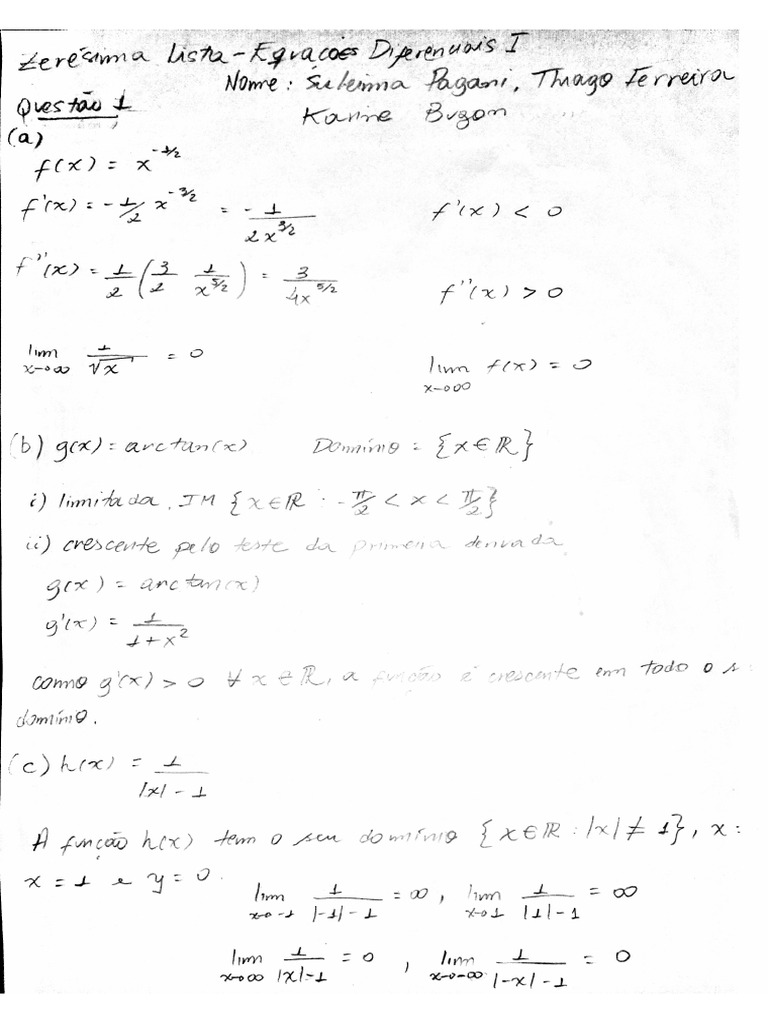 Zerésima Lista - Equações Diferenciais I
Nome: Suleima Pagani, Thiago Ferreira
Karine Buzon
Questão 1
(a)
f(x) = x^{-1/2}
f'(x) = -1/2 x^{-3/2} = -1/(2x^{3/2})    f'(x) < 0
f''(x) = 1/2 (3/2 1/x^{5/2}) = 3/(4x^{5/2})    f''(x) > 0
lim x→∞ 1/√x = 0    lim x→∞ f(x) = 0
(b) g(x) = arctan(x)    Domínio = {x ∈ ℝ}
i) limitada, IM {x ∈ ℝ : -π/2 < x < π/2}
ii) crescente pelo teste da primeira derivada
g(x) = arctan(x)
g'(x) = 1/(1 + x²)
como g'(x) > 0 ∀ x ∈ ℝ, a função é crescente em todo o s
domínio.
(c) h(x) = 1/(|x| - 1)
A função h(x) tem o seu domínio {x ∈ ℝ : |x| ≠ 1}, x:
x = 1 e y = 0.
lim x→-1 1/(|-1| - 1) = ∞, lim x→1 1/(|1| - 1) = ∞
lim x→∞ 1/(|x| - 1) = 0, lim x→-∞ 1/(|-x| - 1) = 0